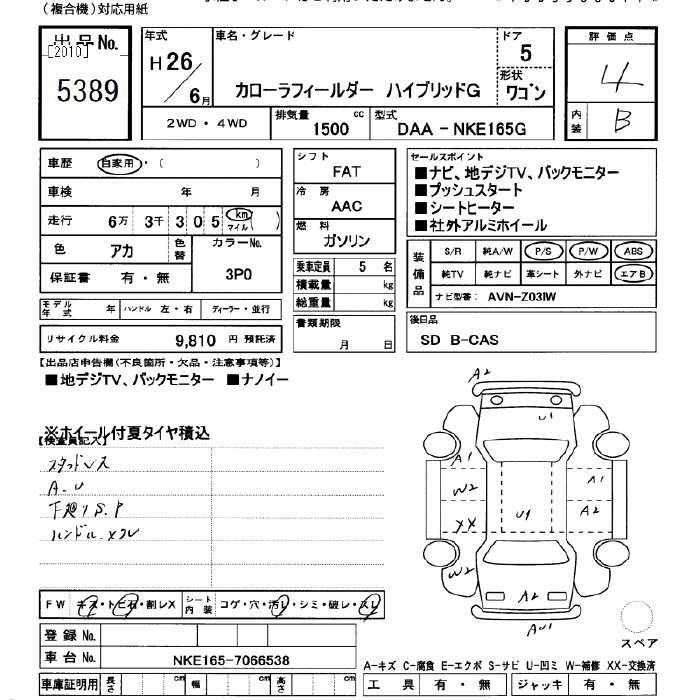 (複合機)対応用紙
出品No. [2010] 5389
年式 H26/6月
車名・グレード カローラフィールダー ハイブリッドG
ドア 5
形状 ワゴン
評価点 4
内装 B
2WD・4WD
排気量 1500 cc
型式 DAA - NKE165G
車歴 自家用・( )
車検 年 月
走行 6万 3千 3 0 5 km マイル( )
色 アカ 色替 カラーNo. 3P0
保証書 有・無
モデル年式 年 ハンドル 左・右 ディーラー・並行
リサイクル料金 9,810 円 預託済
シフト FAT
冷房 AAC
燃料 ガソリン
乗車定員 5 名
積載量 kg
総重量 kg
書類期限 月 日
セールスポイント
■ナビ、地デジTV、バックモニター
■プッシュスタート
■シートヒーター
■社外アルミホイール
装備品
S/R 純A/W P/S P/W ABS
純TV 純ナビ 革シート 外ナビ エアB
ナビ型番: AVN-Z03IW
後日品
SD B-CAS
【出品店申告欄(不良箇所・欠品・注意事項等)】
■地デジTV、バックモニター ■ナノイー
※ホイール付夏タイヤ積込
【検査員記入】
スタッドレス
A.U
下廻りS.P
ハンドル.スレ
FW キズ・トビ石・割レX
シート内装 コゲ・穴・汚レ・シミ・破レ・スレ
登録No.
車台No. NKE165-7066538
車庫証明用 長さ cm 幅 cm 高さ cm
A2
U1
A1
W2
XX
W2
U1
A1
A2
A2
AU1
スペア
A-キズ C-腐食 E-エクボ S-サビ U-凹ミ W-補修 XX-交換済
工具 有・無 ジャッキ 有・無